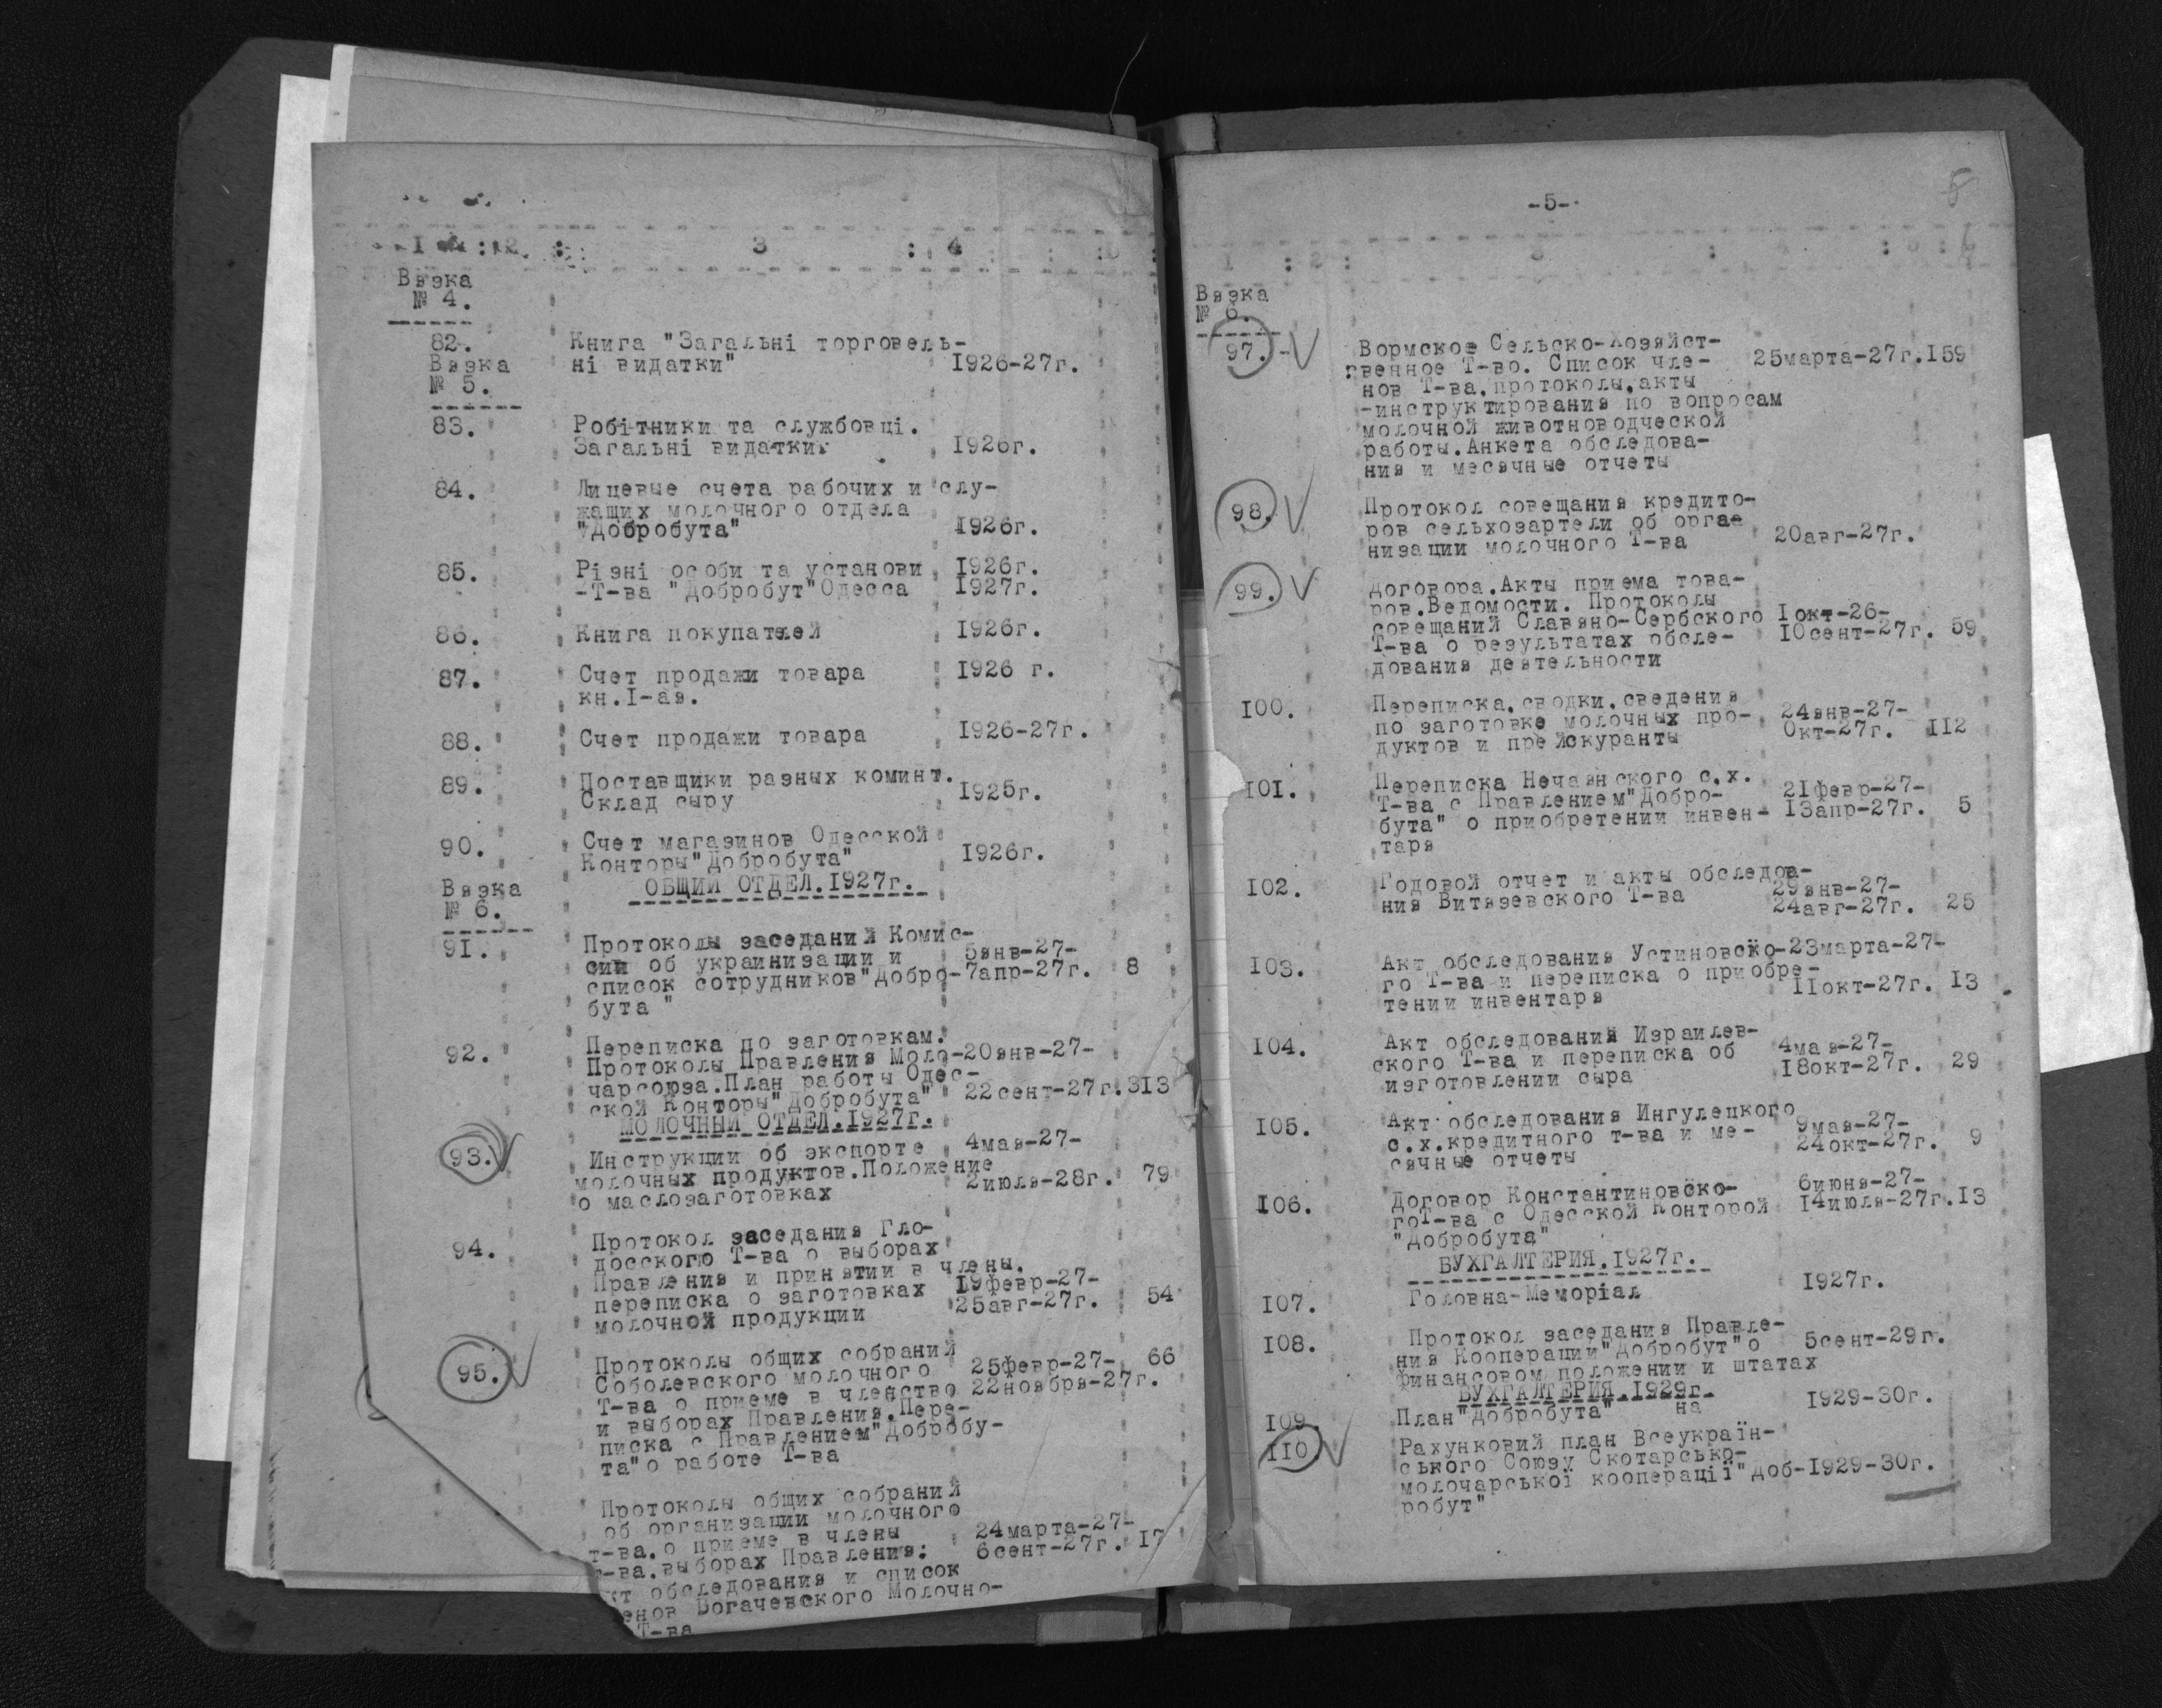 I : 2 : 3 : 4 :
Вязка
№ 4.
82. Книга "Загальні торговель-
ні видатки" I926-27г.
Вязка
№ 5.
83. Робітники та службовці.
Загальні видатки. I926г.
84. Лицевые счета рабочих и слу-
жащих молочного отдела
"Добробута" I926г.
85. Різні особи та установи I926г.
-Т-ва "Добробут"Одесса I927г.
86. Книга покупателей I926г.
87. Счет продажи товара I926 г.
кн.I-ая.
88. Счет продажи товара I926-27г.
89. Поставщики разных коминт.
Склад сыру I926г.
90. Счет магазинов Одесской
Конторы"Добробута" I926г.
Вязка ОБЩИЙ ОТДЕЛ.I927г.
№ 6.
91. Протоколы заседаний Комис-
сии об украинизации и 5янв-27-
список сотрудников"Добро-7апр-27г. 8
бута"
92. Переписка по заготовкам.
Протоколы Правления Моло-20янв-27-
чарсоюза.План работы Одес-
ской Конторы"Добробута" 22сент-27г.3I3
МОЛОЧНЫЙ ОТДЕЛ.I927г.
93. Инструкции об экспорте 4мая-27-
молочных продуктов.Положение
о маслозаготовках 2июля-28г. 79
94. Протокол заседания Гло-
досского Т-ва о выборах
Правления и принятии в члены.
переписка о заготовках I9февр-27-
молочной продукции 25авг-27г. 54
95. Протоколы общих собраний
Соболевского молочного 25февр-27- 66
Т-ва о приеме в членство 22ноября-27г.
и выборах Правления.Пере-
писка с Правлением"Добробу-
та"о работе Т-ва
Протоколы общих собраний
об организации молочного
т-ва.о приеме в члены 24марта-27-
т-ва.выборах Правления: 6сент-27г. I7
кт обследования и список
енов Богачевского Молочно-
Т-ва
-5-
I : 2 : 3 : :
Вязка
№ 6.
97. Вормское Сельско-Хозяйст-
венное Т-во. Список чле- 25марта-27г.I59
нов Т-ва.протоколы.акты
-инструктирования по вопросам
молочной животноводческой
работы.Анкета обследова-
ния и месячные отчеты
98. Протокол совещания кредито-
ров сельхозартели об орга-
низации молочного Т-ва 20авг-27г.
99. Договора.Акты приема това-
ров.Ведомости. Протоколы
совещаний Славяно-Сербского Iокт-26-
Т-ва о результатах обсле- I0сент-27г. 59
дования деятельности
I00. Переписка.сводки.сведения
по заготовке молочных про- 24янв-27-
дуктов и прейскуранты Окт-27г. II2
I0I. Переписка Нечаянского с.х.
Т-ва с Правлением"Добро- 2Iфевр-27-
бута" о приобретении инвен- I3апр-27г. 5
таря
I02. Годовой отчет и акты обследова-
ния Витязевского Т-ва 29янв-27-
24авг-27г. 25
I03. Акт обследования Устиновско-23марта-27-
го Т-ва и переписка о приобре-
тении инвентаря IIокт-27г. I3
I04. Акт обследования Израилев-
ского Т-ва и переписка об 4мая-27-
изготовлении сыра I8окт-27г. 29
I05. Акт обследования Ингулецкого
с.х.кредитного т-ва и ме- 9мая-27-
сячные отчеты 24окт-27г. 9
I06. Договор Константиновско- 6июня-27-
гоТ-ва с Одесской Конторой I4июля-27г.I3
"Добробута"
БУХГАЛТЕРИЯ.I927г.
I07. Головна-Меморіал I927г.
I08. Протокол заседания Правле-
ния Кооперации"Добробут"о 5сент-29г.
финансовом положении и штатах
БУХГАЛТЕРИЯ.I929г.
I09. План"Добробута" на I929-30г.
II0. Рахунковий план Всеукраїн-
ського Союзу Скотарсько-
молочарської кооперації"Доб-I929-30г.
робут"